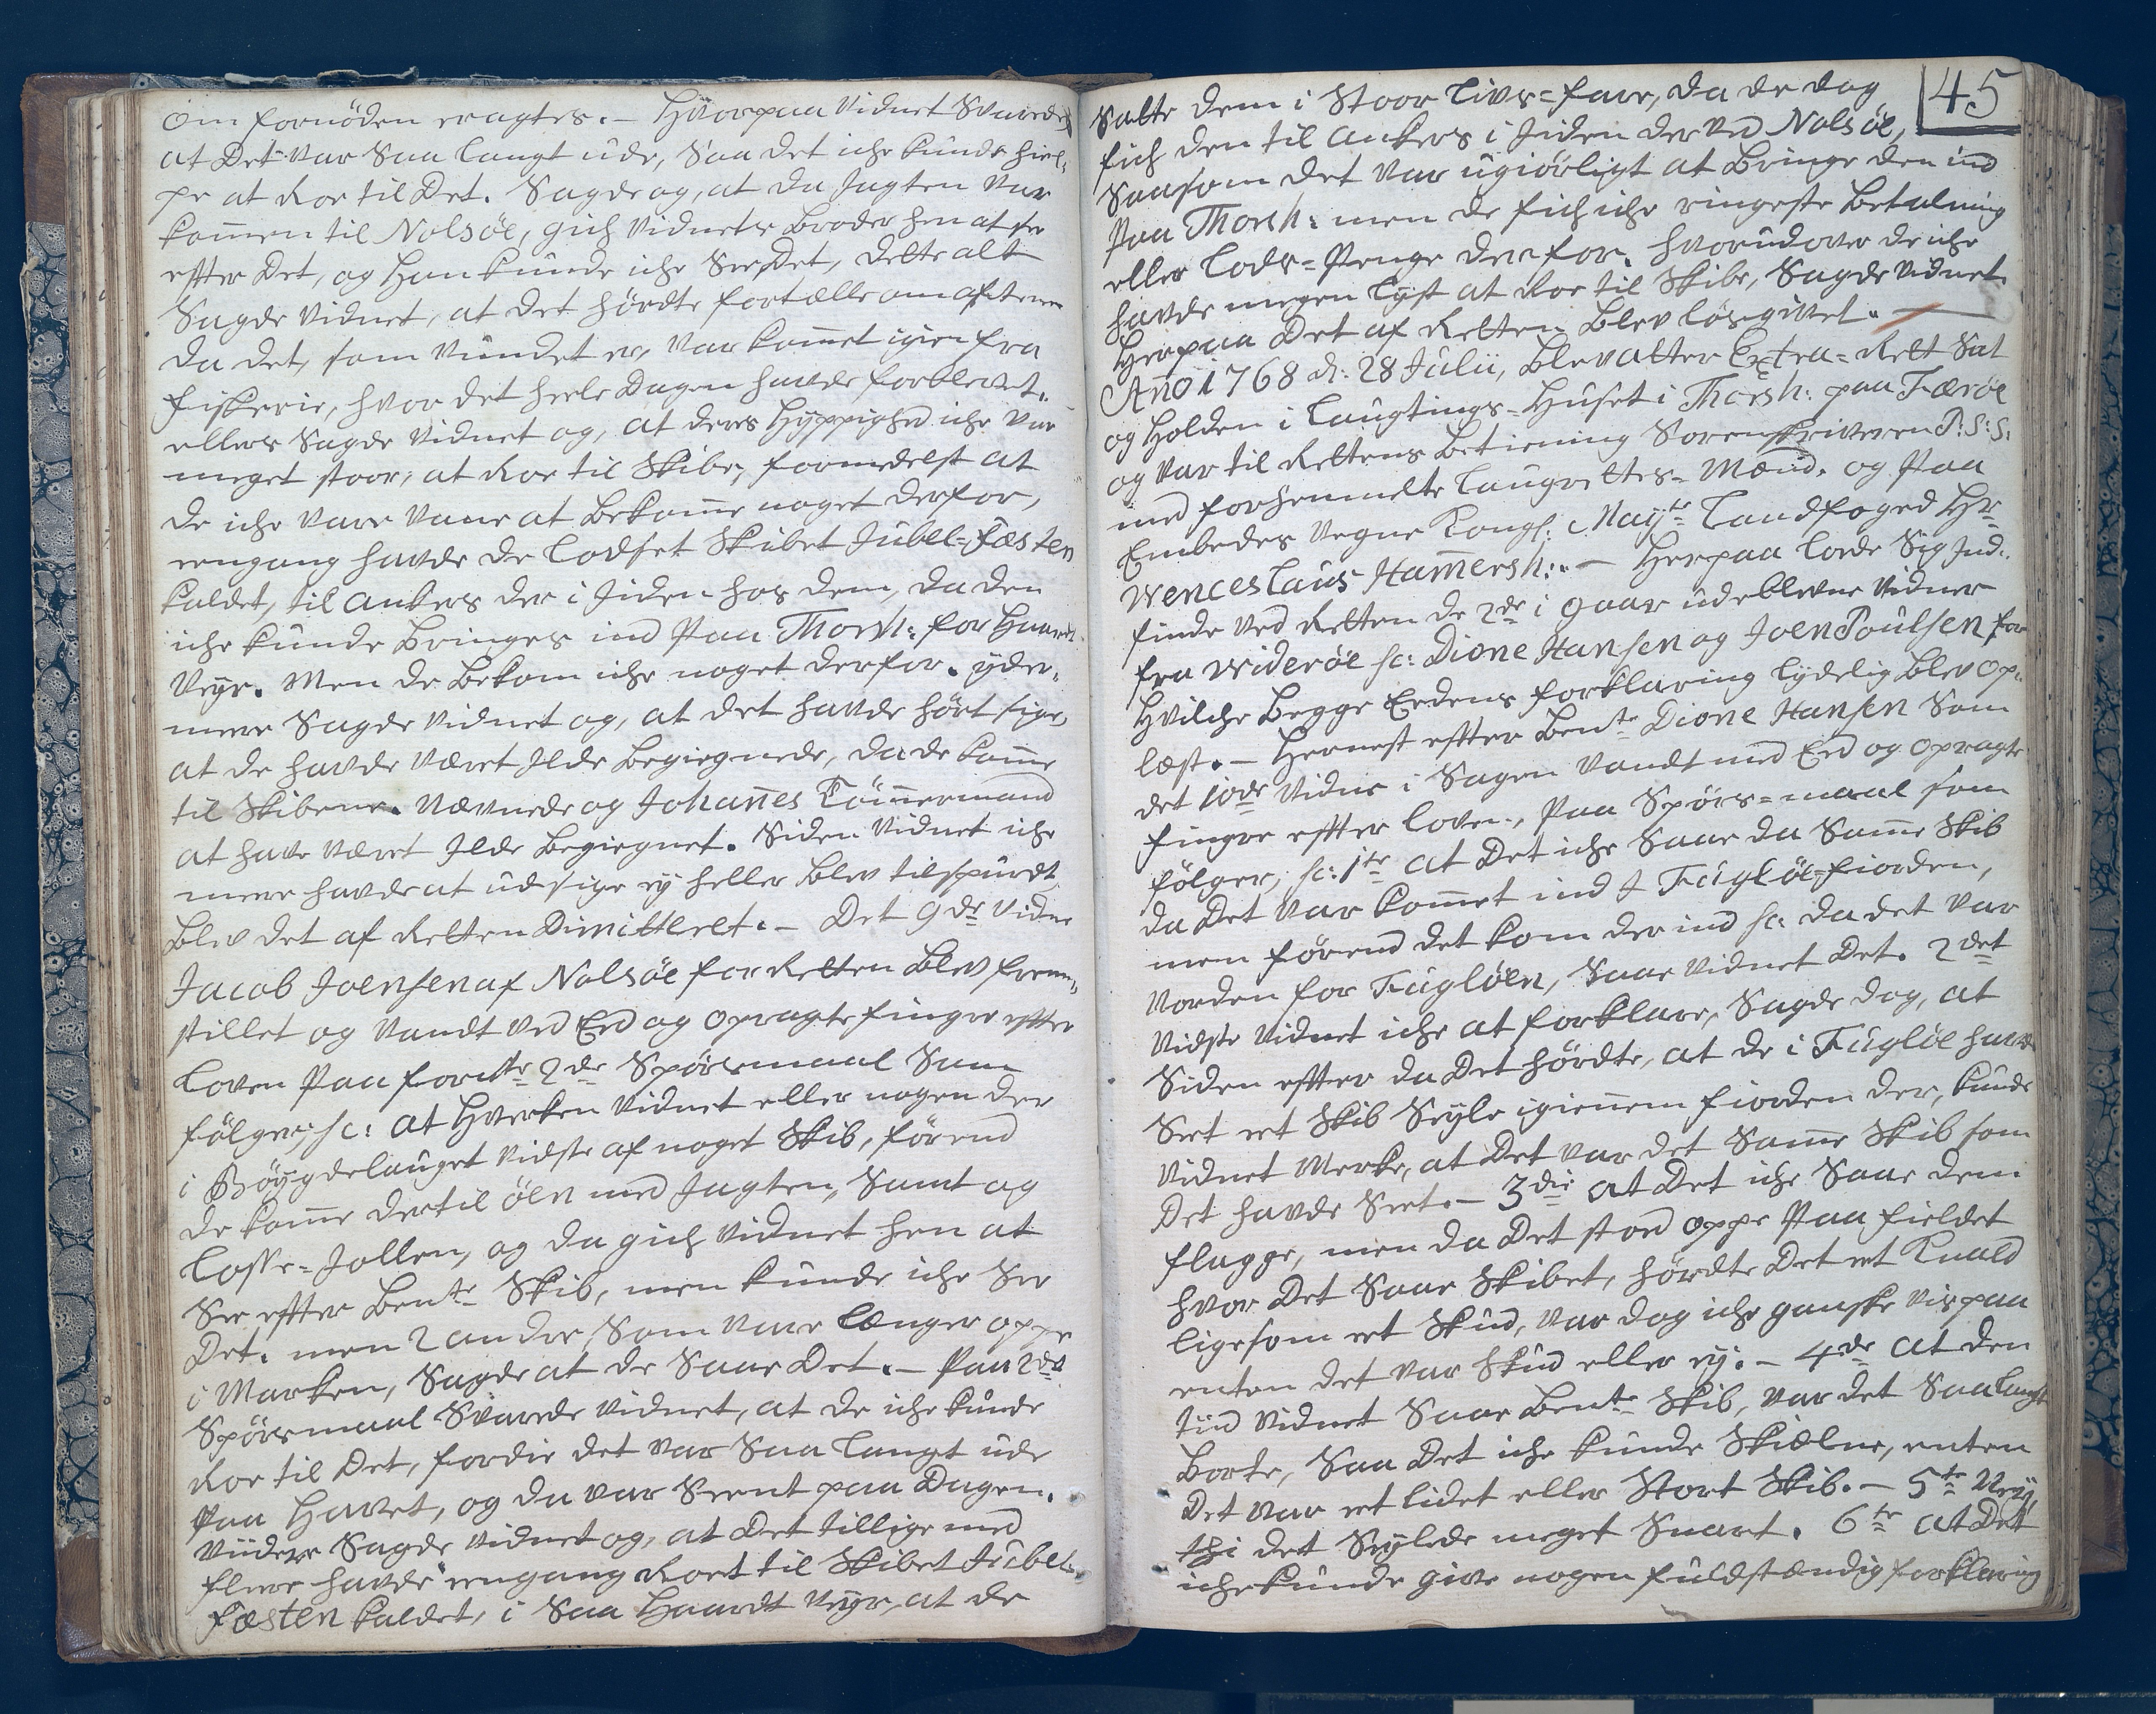 om fornøden eragtes. — Hvorpaa Vidnet Svarede,
at Det var saa langt ude, Saa det iche kunde hiel-
pe at Roe til Det. Sagde og, at da Jagten var
kom̄en til Nolsøe, gich Vidnets Broder hen at see
effter Det, og Han kunde iche See Det, dette alt
Sagde Vidnet, at det hördte fortælle om aftenen
da det, som Vundet er, var kom̄et igien fra
fiskerie, hvor det heele Dagen havde forblevet.
ellers Sagde Vidnet og, at deres Hyppighed iche var
meget stoor, at Roe til Skibe, formedelst at
de iche vare vane at Bekom̄e noget derfor,
eengang havde de Lodset Skibet Jubel-Fæsten
kaldet, til Ankers der i Eiden hos dem, da den
iche kunde Bringes ind paa Thorsh: for Haardt
Veyr. Men de Bekom iche noget derfor. yder-
meere Sagde Vidnet og, at det havde hørt sige,
at de havde været Ilde Begiegnede, da de kom̄e
til Skibene. Nævnede og Johan̄es Töm̄ermand
at have været Ilde Begiegnet. Siden Vidnet iche
meere havde at udsige ey heller Blev tilspurdt
Blev det af Retten Dimitteret. — Det 9de Vidne
Jacob Joensen af Nolsøe for Retten Blev frem-
stillet og Vandt ved Eed og Opragte finger effter
Loven Paa formte 2de Spörsmaal Som
følger, sc: at Hverken Vidnet eller nogen der
i Böygdelauget Vidste af noget Skib, förend
de kom̄e der til öen med Jagten, Samt og
Losse-Jollen, og da gich Vidnet hen at
See effter Bente Skib, men kunde iche See
Det. men 2 andre, Som vare længer oppe
i Marken, Sagde at de Saae Det. — Paa 2det
Spörsmaal Svarede Vidnet, at de iche kunde
Roe til Det, fordie det var Saa langt ude
Paa Havet, og da var Seent paa Dagen.
Viidere Sagde Vidnet og, at Det tillige med
fleere havde eengang Roet til Skibet Jubel-
Fæsten kaldet, i Saa Haardt Veyr, at de
45
Satte dem i Stoor Livs-fare, da de dog
fich den til Ankers i Eiden der ved Nolsøe,
Saasom det var ugiørligt at Bringe den ind
Paa Thorsh: men de fich iche ringeste Betalning
eller Lods-Penge derfor, hvorudover de iche
havde megen Lyst at Roe til Skibe, Sagde Vidnet.
Herpaa Det af Retten Blev lösgivet. —
An̄o 1768 d: 28 Julii, Blev atter Extra-Rett Sat
og Holden i Laugtings-Huset i Thorsh: paa Færöe
og var til Rettens Betiening Sorenskriveren P: S: S:
med forhenmelte Laugrettes-Mænd. og Paa
Embedes Vegne Kongl: Mayts Landfoged Hr
Wenceslaus Ham̄ersh: — Herpaa lode Sig Ind-
finde ved Retten de 2de i gaar udeblevne Vidner
fra Widerøe sc: Dione Hansen og Joen Poulsen for
Hvilche Begge Eedens forklaring tydelig Blev Op-
læst. — Hernest effter Bente Dione Hansen Som
det 10de Vidne i Sagen Vandt med Eed og Opragte
fingre effter Loven, Paa Spörs-maal som
fölger, sc: 1te at Det iche Saae da Sam̄e Skib
da Det var kom̄et ind I Fuglöe-fiorden,
men förend det kom der ind sc: da det var
Norden for Fuglöen, Saae Vidnet Det. 2det
Vidste Vidnet iche at forklare, Sagde dog, at
Siden effter da Det hördte, at de i Fuglöe havde
Seet eet Skib Seyle igien̄em fiorden der, kunde
Vidnet Merke, at Det var det Sam̄e Skib som
Det havde Seet. — 3die at Det iche Saae dem
flagge, men da Det stoed oppe Paa fieldet
hvor Det Saae Skibet, hördte Det eet Knald
ligesom eet Skud, var dog iche ganske vis paa
enten det var Skud eller ey. — 4de at den
tiid Vidnet Saae Bente Skib, var det Saa langt
Borte, Saa Det iche kunde Skiælne, enten
Det var eet lidet eller Stort Skib. — 5te Ney,
thi det Seylede meget Snart. 6te at Det
iche kunde give nogen fuldstændig forklaring